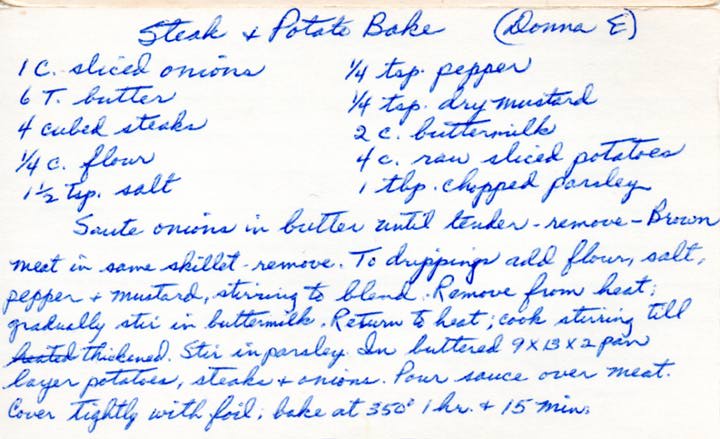 Steak + Potato Bake (Donna E)
1 C. sliced onions
6 T. butter
4 cubed steaks
1/4 c. flour
1 1/2 tsp. salt
1/4 tsp. pepper
1/4 tsp. dry mustard
2 c. buttermilk
4 c. raw sliced potatoes
1 tbp. chopped parsley
Saute onions in butter until tender - remove - Brown
meat in same skillet - remove. To drippings add flour, salt,
pepper + mustard, stirring to blend. Remove from heat;
gradually stir in buttermilk. Return to heat; cook stirring till
heated thickened. Stir in parsley. In buttered 9X13X2 pan
layer potatoes, steaks + onions. Pour sauce over meat.
Cover tightly with foil; bake at 350° 1 hr. + 15 min.